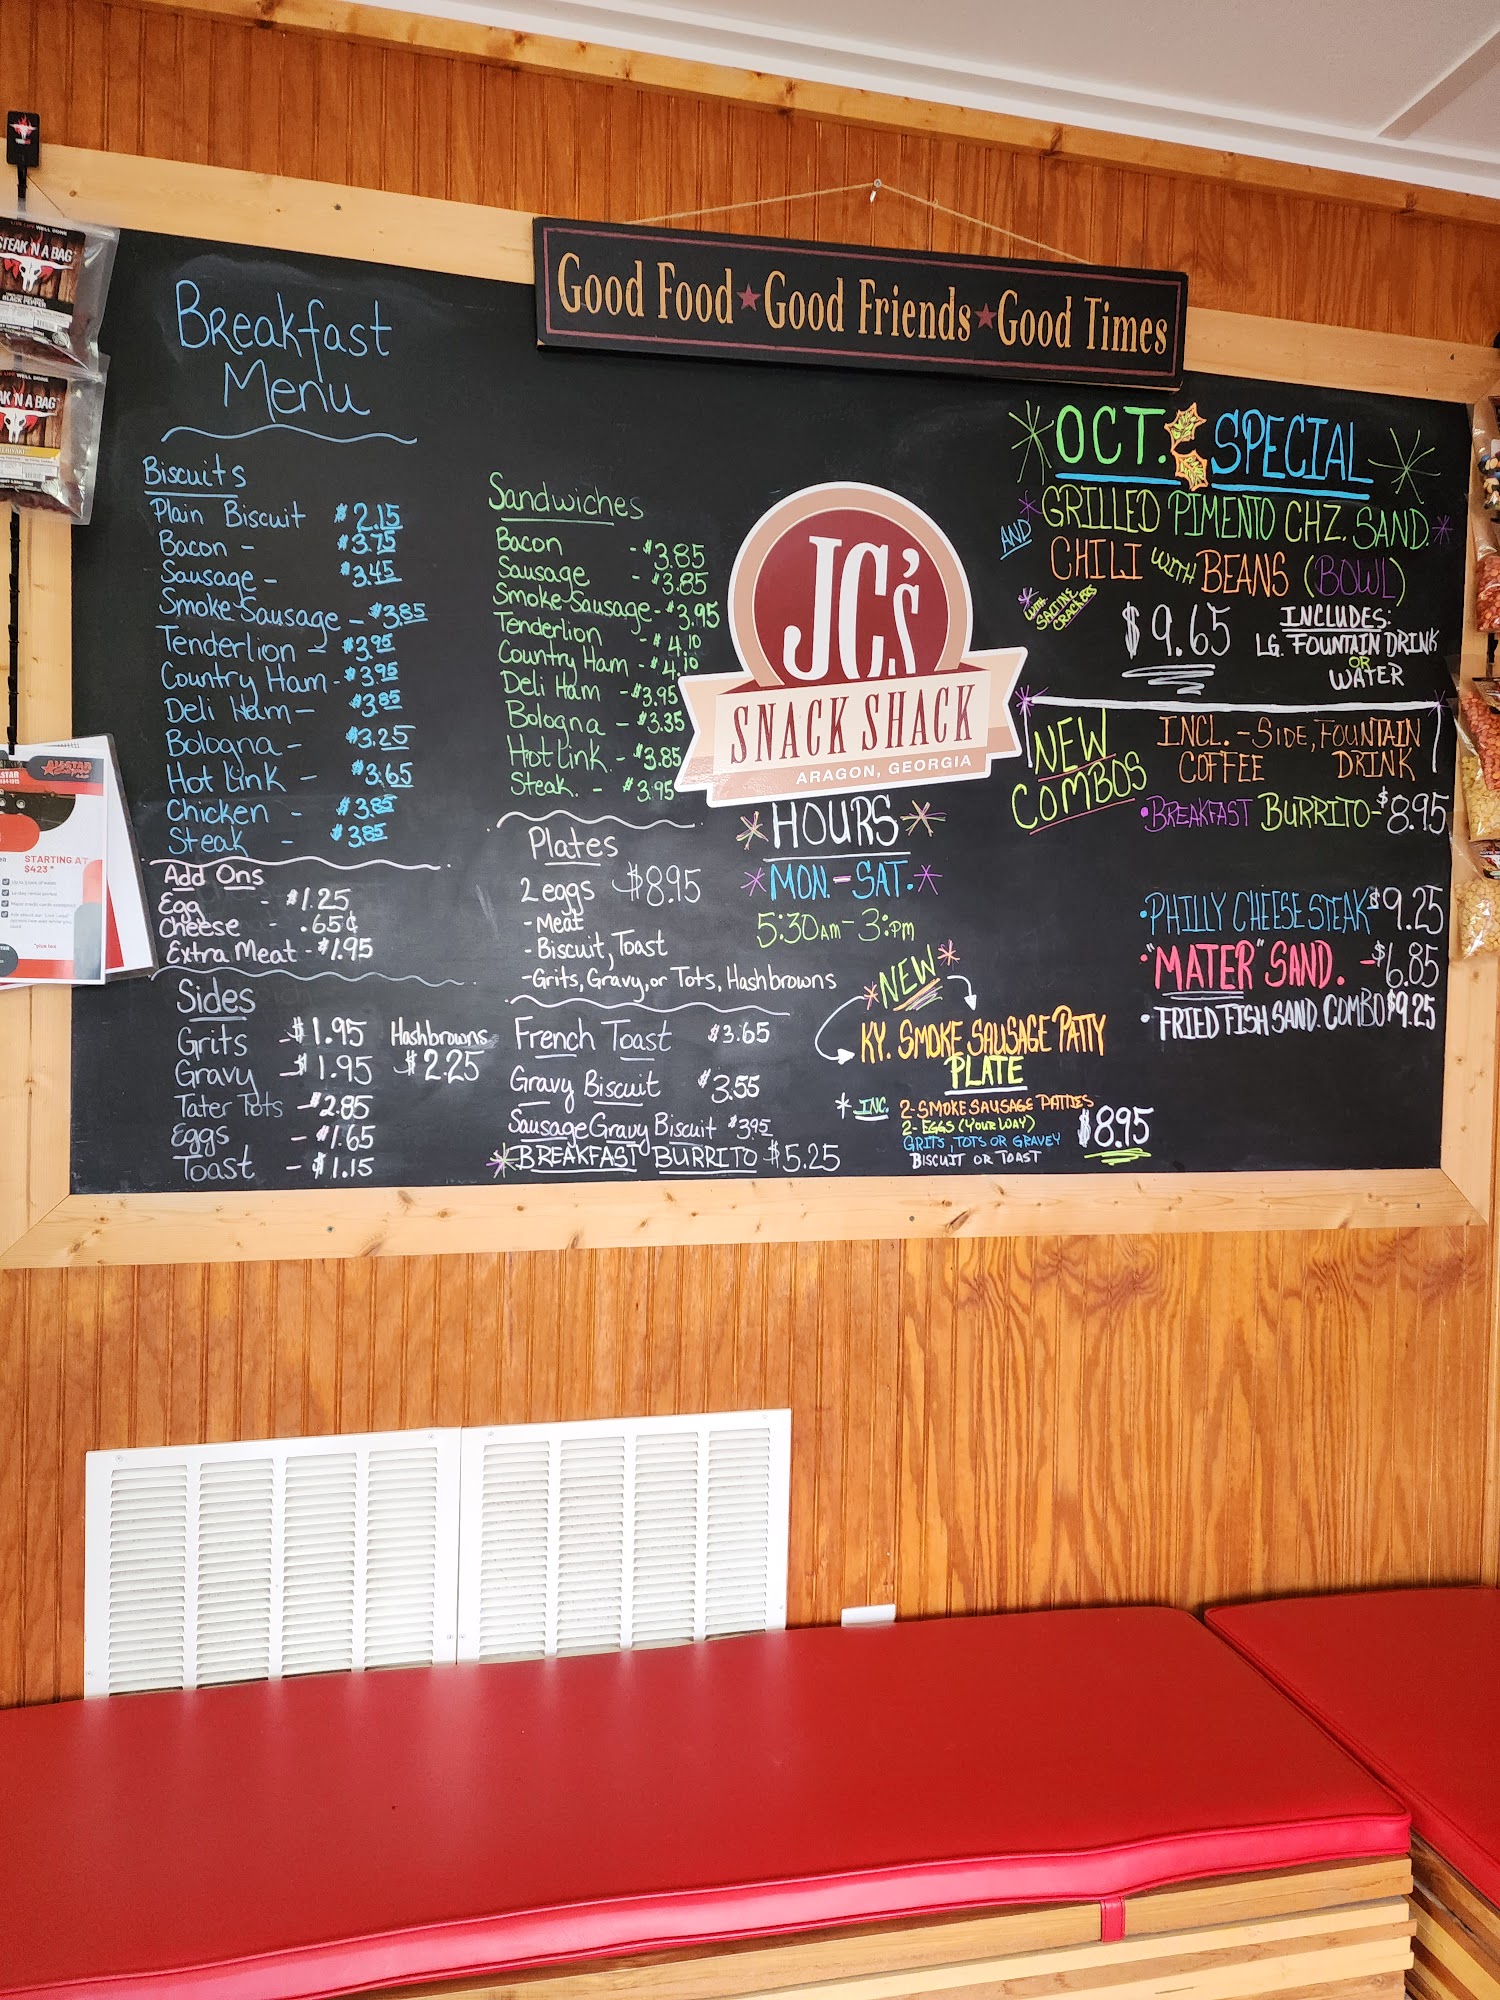 Good Food ★ Good Friends ★ Good Times
Breakfast
Menu
Biscuits
Plain Biscuit $2.15
Bacon - $3.75
Sausage - $3.45
Smoke Sausage - $3.85
Tenderlion - $3.95
Country Ham - $3.95
Deli Ham - $3.85
Bologna - $3.25
Hot Link - $3.65
Chicken - $3.85
Steak - $3.85
Add Ons
Egg - $1.25
Cheese - .65¢
Extra Meat - $1.95
Sides
Grits - $1.95
Gravy - $1.95
Tater Tots - $2.85
Eggs - $1.65
Toast - $1.15
Hashbrowns
$2.25
Sandwiches
Bacon - $3.85
Sausage - $3.85
Smoke Sausage - $3.95
Tenderlion - $4.10
Country Ham - $4.10
Deli Ham - $3.95
Bologna - $3.35
Hot Link - $3.85
Steak. - $3.95
Plates
2 eggs $8.95
- Meat
- Biscuit, Toast
- Grits, Gravy, or Tots, Hashbrowns
French Toast $3.65
Gravy Biscuit $3.55
Sausage Gravy Biscuit $3.95
BREAKFAST BURRITO $5.25
JC's
SNACK SHACK
ARAGON, GEORGIA
HOURS
MON. - SAT.
5:30AM - 3:PM
NEW
KY. SMOKE SAUSAGE PATTY
PLATE
INC. 2-SMOKE SAUSAGE PATTIES
2-EGGS (YOUR WAY)
GRITS, TOTS OR GRAVEY
BISCUIT OR TOAST
$8.95
OCT. SPECIAL
GRILLED PIMENTO CHZ. SAND.
AND CHILI WITH BEANS (BOWL)
WITH SALTINE CRACKERS
$9.65
INCLUDES:
LG. FOUNTAIN DRINK
OR
WATER
NEW
COMBOS
INCL. - SIDE, FOUNTAIN
COFFEE DRINK
• BREAKFAST BURRITO - $8.95
• PHILLY CHEESE STEAK $9.25
• "MATER" SAND. - $6.85
• FRIED FISH SAND. COMBO $9.25
STEAK 'N A BAG
BLACK PEPPER
AK 'N A BAG
STARTING AT
$423*